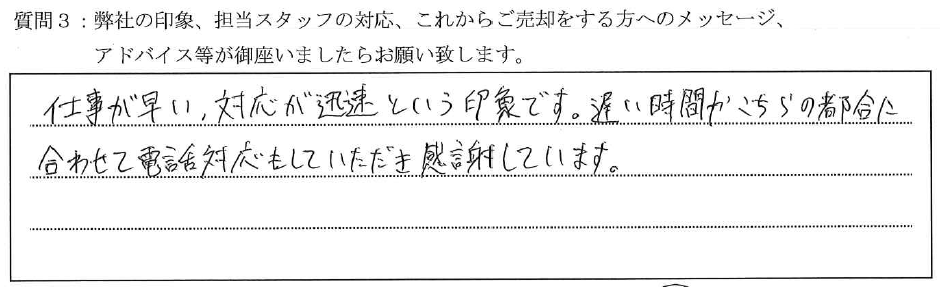 質問3：弊社の印象、担当スタッフの対応、これからご売却をする方へのメッセージ、
アドバイス等が御座いましたらお願い致します。
仕事が早い,対応が迅速という印象です。遅い時間かこちらの都合に
合わせて電話対応もしていただき感謝しています。